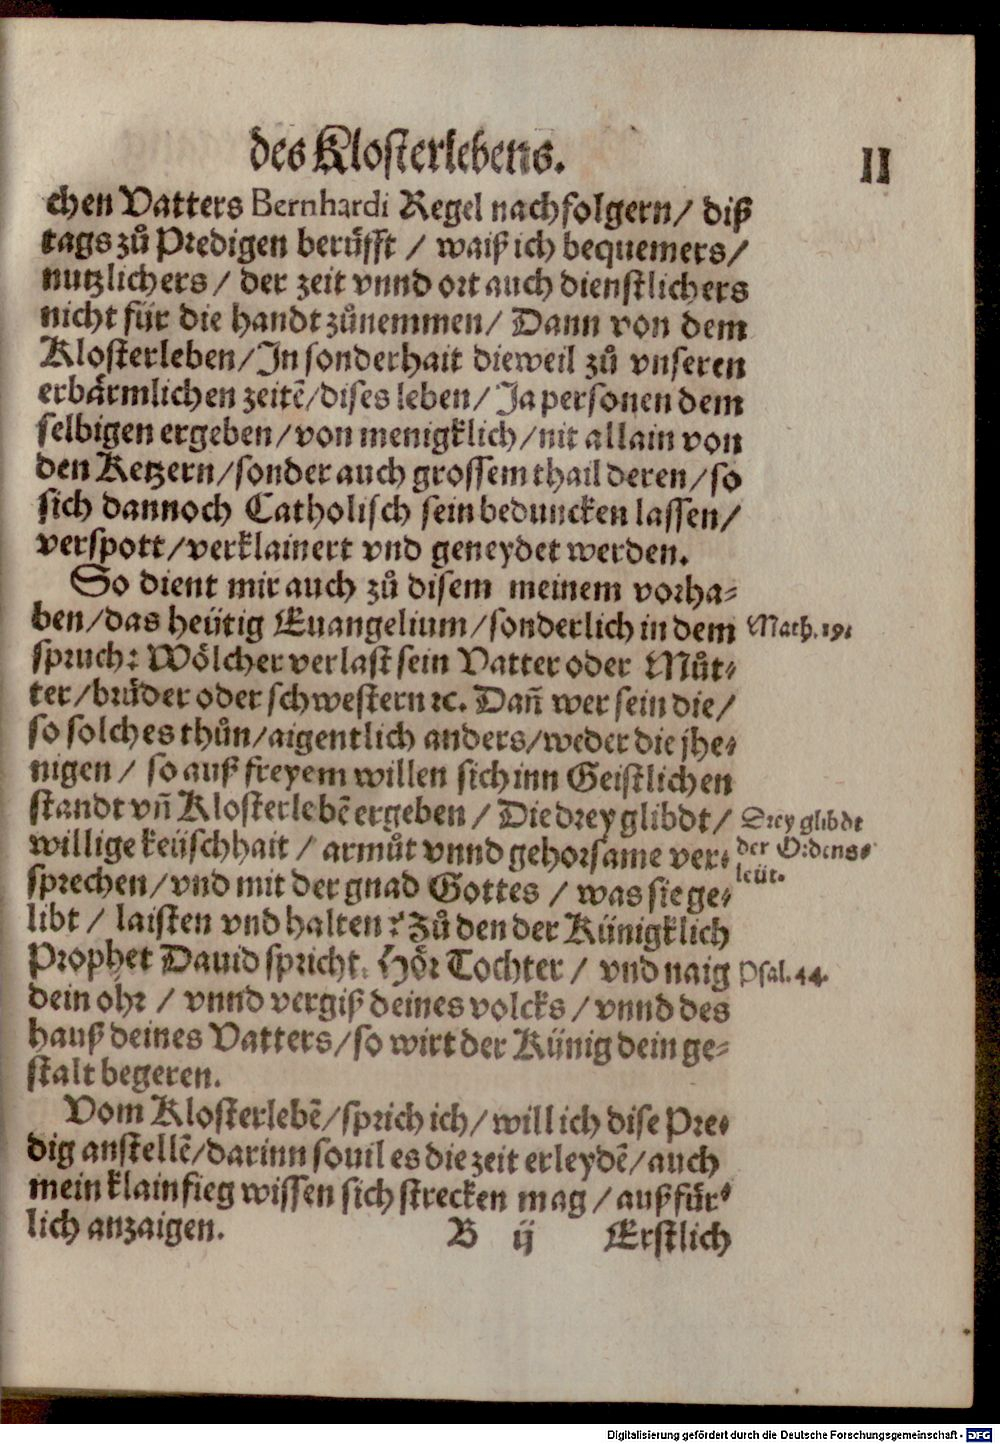 des Klosterlebens.
II
chen Vatters Bernhardi Regel nachfolgern/ diß
tags zů Predigen berůfft / waiß ich bequemers/
nutzlichers / der zeit vnnd ort auch dienstlichers
nicht für die handt zůnemmen/ Dann von dem
Klosterleben/ In sonderhait dieweil zů vnseren
erbärmlichen zeitẽ/ dises leben/ Ja personen dem
selbigen ergeben/ von menigklich/ nit allain von
den Ketzern/ sonder auch grossem thail deren/ so
sich dannoch Catholisch sein beduncken lassen/
verspott/ verklainert vnd geneydet werden.
So dient mir auch zů disem meinem vorha-
ben/ das heütig Euangelium/ sonderlich in dem
Math. 19.
spruch: Wölcher verlast sein Vatter oder Můt-
ter/ brüder oder schwestern ꝛc. Dañ wer sein die/
so solches thůn/ aigentlich anders/ weder die jhe-
nigen / so auß freyem willen sich inn Geistlichen
standt vñ Klosterlebẽ ergeben / Die drey glibdt/
Drey glibdt
der Ordens-
leüt.
willige keüschhait / armůt vnnd gehorsame ver-
sprechen/ vnd mit der gnad Gottes / was sie ge-
libt / laisten vnd halten? Zů den der Künigklich
Prophet Dauid spricht: Hör Tochter / vnd naig
Psal. 44.
dein ohr / vnnd vergiß deines volcks / vnnd des
hauß deines Vatters/ so wirt der Künig dein ge-
stalt begeren.
Vom Klosterlebẽ/ sprich ich/ will ich dise Pre-
dig anstellẽ/ darinn souil es die zeit erleydẽ/ auch
mein klainfieg wissen sich strecken mag / außfür-
lich anzaigen.
B ij
Erstlich
Digitalisierung gefördert durch die Deutsche Forschungsgemeinschaft - DFG